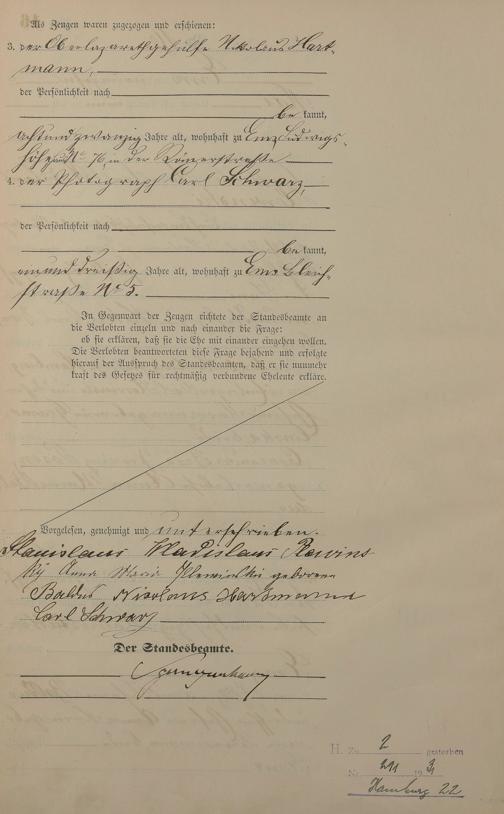 Als Zeugen waren zugezogen und erschienen:
3. der Oberlazarethgehülfe Nikolaus Hart-
mann,
der Persönlichkeit nach
be kannt,
achtundzwanzig Jahre alt, wohnhaft zu Ems Ludwigs-
höhe No 76 in der Römerstraße
4. der Photograph Carl Schwarz,
der Persönlichkeit nach
be kannt,
einunddreißig Jahre alt, wohnhaft zu Ems Bleich-
straße No 5.
In Gegenwart der Zeugen richtete der Standesbeamte an
die Verlobten einzeln und nach einander die Frage:
ob sie erklären, daß sie die Ehe mit einander eingehen wollen.
Die Verlobten beantworteten diese Frage bejahend und erfolgte
hierauf der Ausspruch des Standesbeamten, daß er sie nunmehr
kraft des Gesetzes für rechtmäßig verbundene Eheleute erkläre.
Vorgelesen, genehmigt und unterschrieben.
Stanislaus Wladislaus
Anna Maria geborene
Baldus Nikolaus Hartmann
Carl Schwarz
Der Standesbeamte.
H. Zu 2 gestorben
Nr. 19 31
Hamburg 22